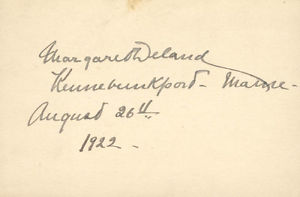 Margaret Deland
Kennebunkport - Maine -
August 26th
1922 -